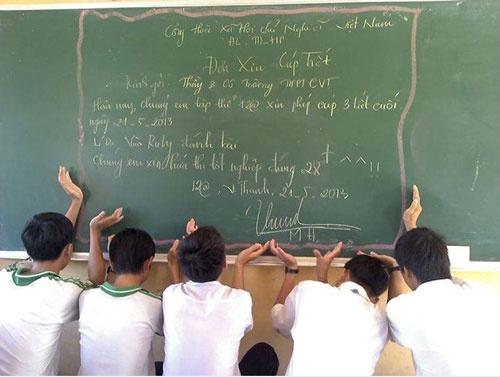 Cộng Hòa Xã Hội Chủ Nghĩa Việt Nam
ĐL_TD_HP
Đơn Xin Cúp Tiết
Kính gởi: Thầy & Cô trường THPT CVT
Hôm nay, chúng em tập thể 12@ xin phép cúp 3 tiết cuối
ngày 21-5-2013
Lí Do: Vào Ruby đánh bài
Chúng em xin hứa thi tốt nghiệp đúng 28+ ^^!!
12@, V Thanh, 21-5-2013
MH